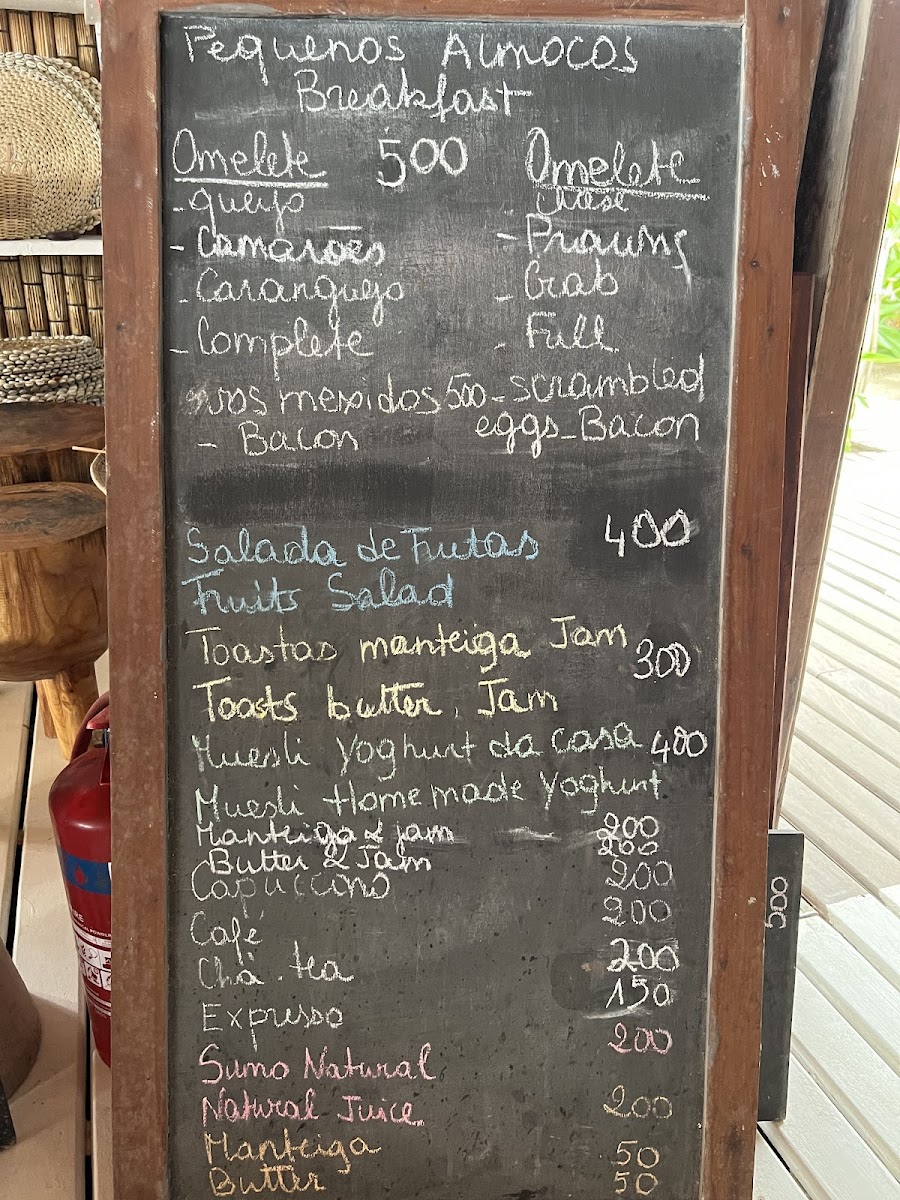 Pequenos Almocos
Breakfast
Omelete 500 Omelete
- queijo - chese
- Camarões - Prawns
- Caranguejo - Crab
- Complete - Full
ovos mexidos 500 - scrambled
- Bacon eggs - Bacon
Salada de Frutas 400
Fruits Salad
Toastas manteiga Jam 300
Toasts butter, Jam
Muesli Yoghurt da casa 400
Muesli Homemade Yoghurt
Manteiga & jam 200
Butter & Jam 200
Capuccino 200
Café 200
Chá. tea 200
Expresso 150
Sumo Natural 200
Natural Juice 200
Manteiga 50
Butter 50
500